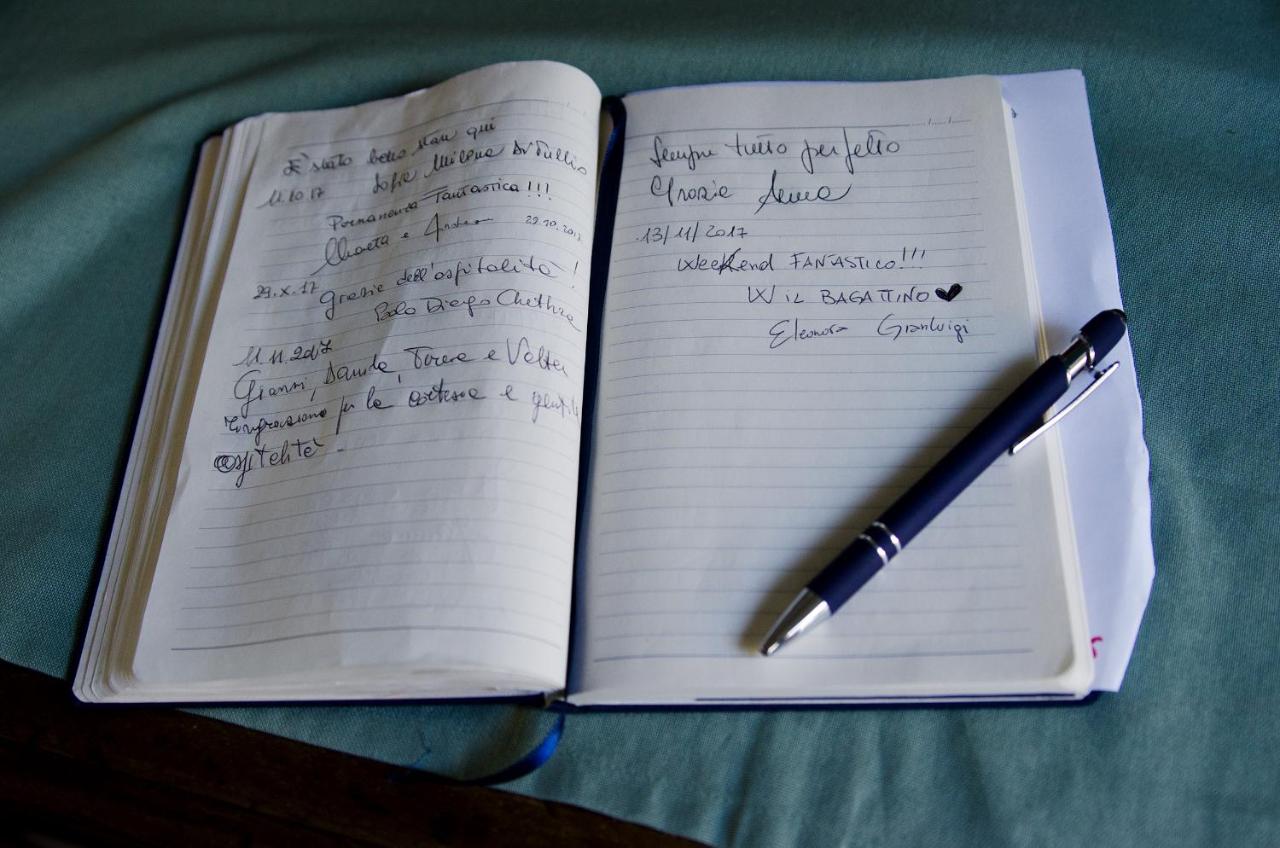 È stato bello stare qui
11.10.17 Sofia Milena Di Tullio
Permanenza Fantastica!!!
e Andrea 29.10.2017
29.X.17 grazie dell'ospitalità!
Paolo Diego
11.11.2017
Gianni, Davide, e Valter
ringraziano per la cortesia e gentile
ospitalità.
Sempre tutto perfetto
Grazie Anna
13/11/2017
Weekend FANTASTICO!!!
W IL BAGATTINO ♥
Eleonora Gianluigi